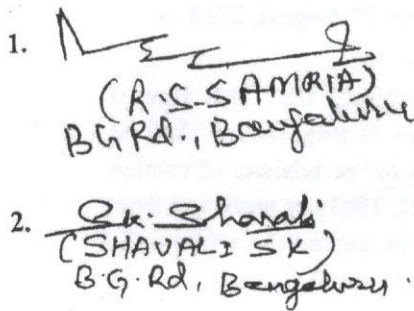 1.
(R.S.SAMRIA)
BG Rd., Bengaluru
2. Sk. Shavali
(SHAVALI SK)
B.G.Rd, Bengaluru.